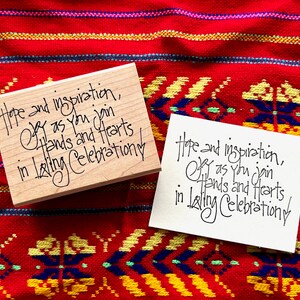 Hope and inspiration,
Joy as you join
Hands and Hearts
in Loving Celebration!
Hope and inspiration,
Joy as you join
Hands and Hearts
in Loving Celebration!